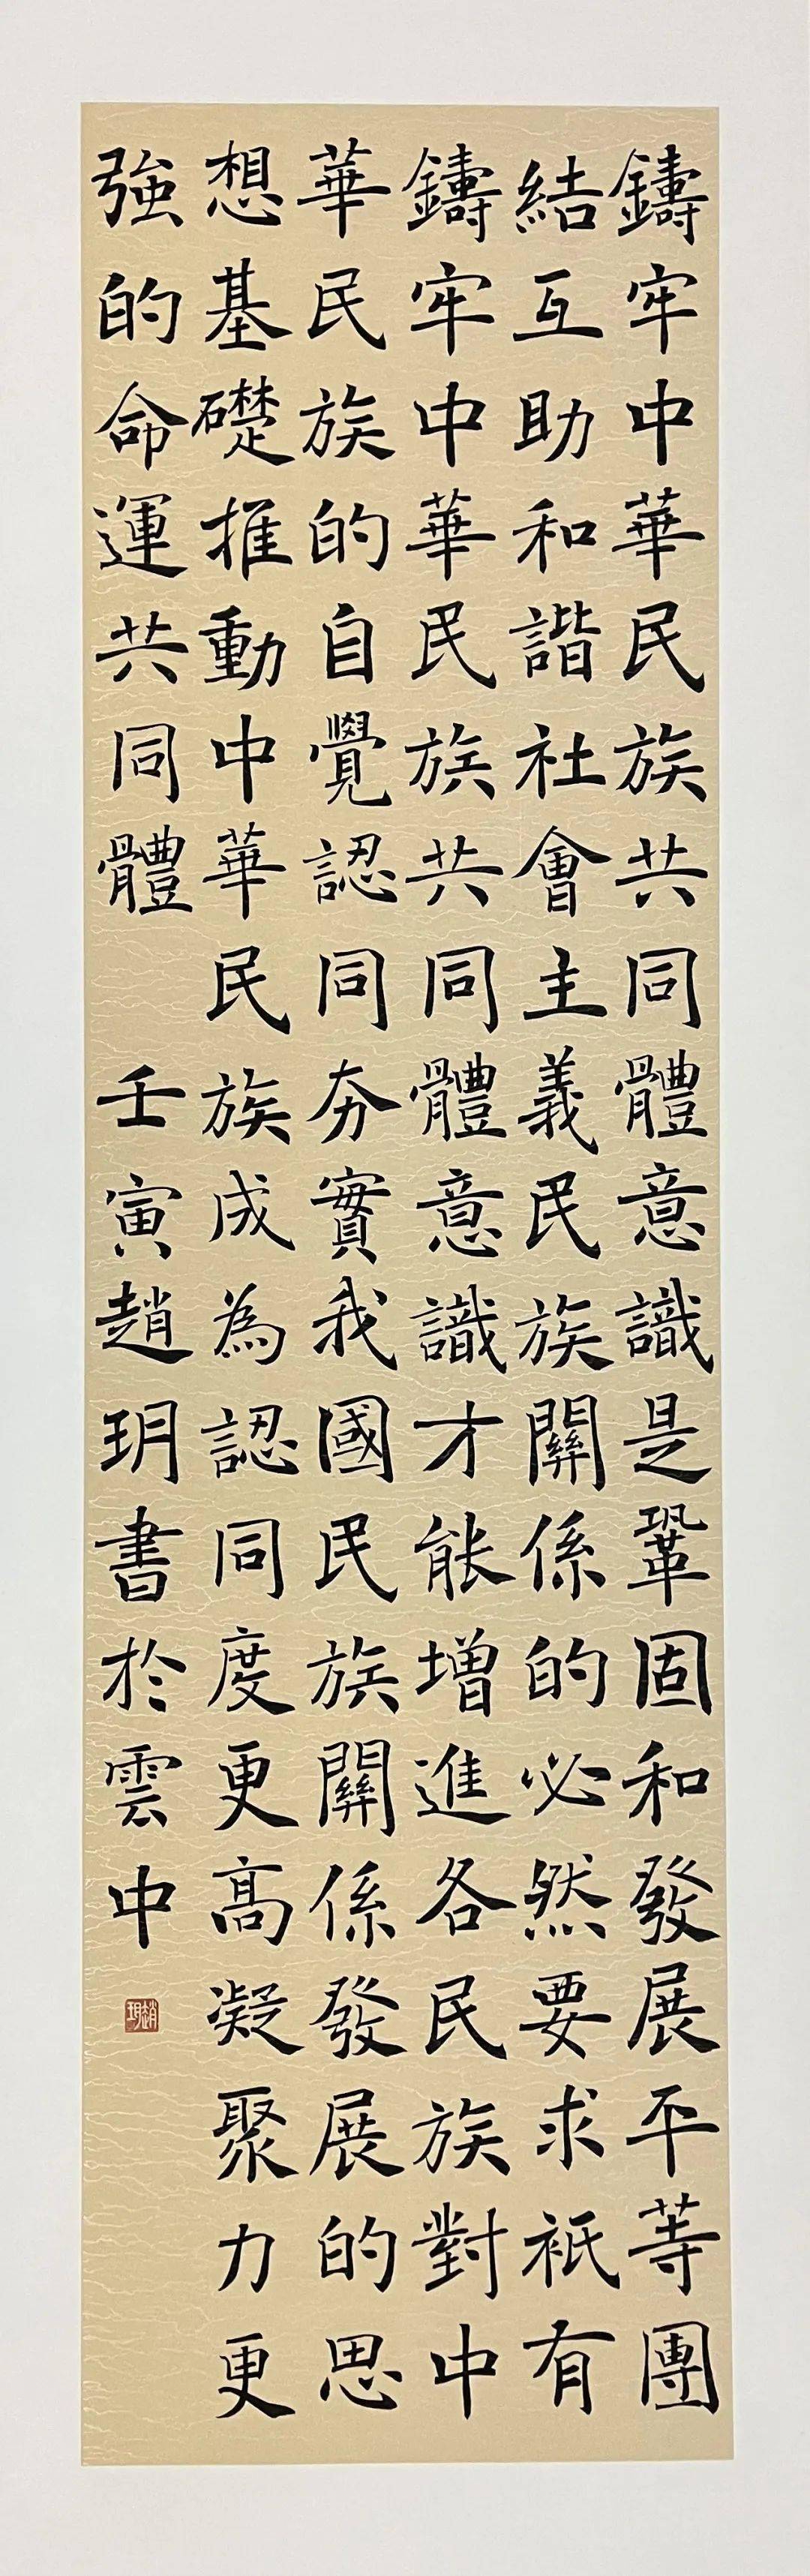 鑄牢中華民族共同體意識是鞏固和發展平等團
結互助和諧社會主義民族關係的必然要求衹有
鑄牢中華民族共同體意識才能增進各民族對中
華民族的自覺認同夯實我國民族關係發展的思
想基礎推動中華民族成為認同度更高凝聚力更
強的命運共同體 壬寅趙玥書於雲中
趙玥